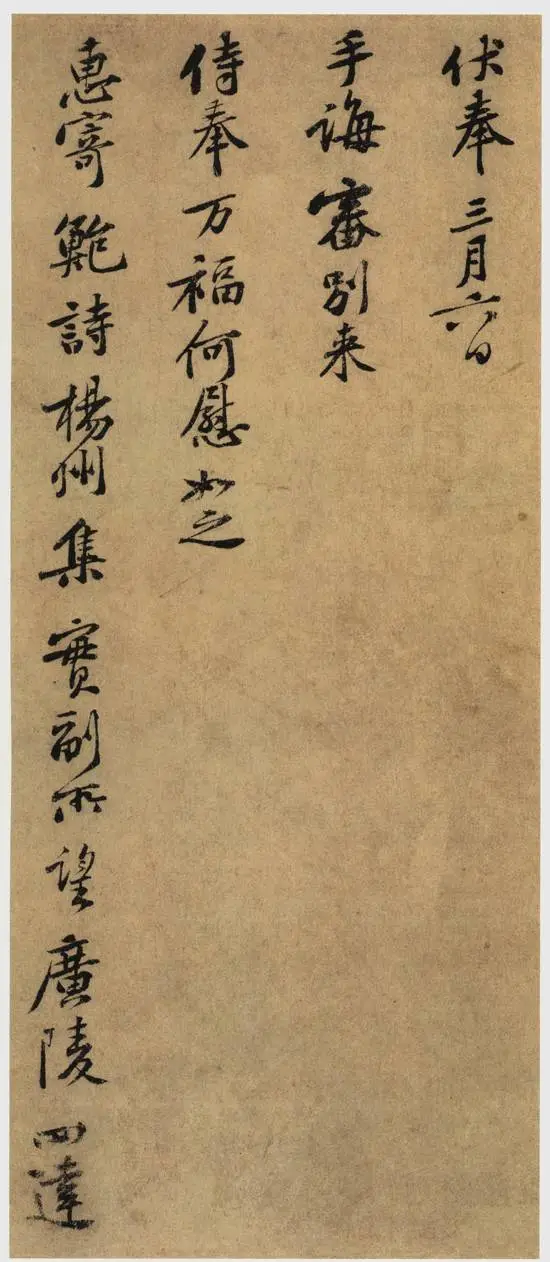 伏奉三月六日
手誨審別来
侍奉万福何慰如之
惠寄鲍詩楊州集實副所望廣陵四達